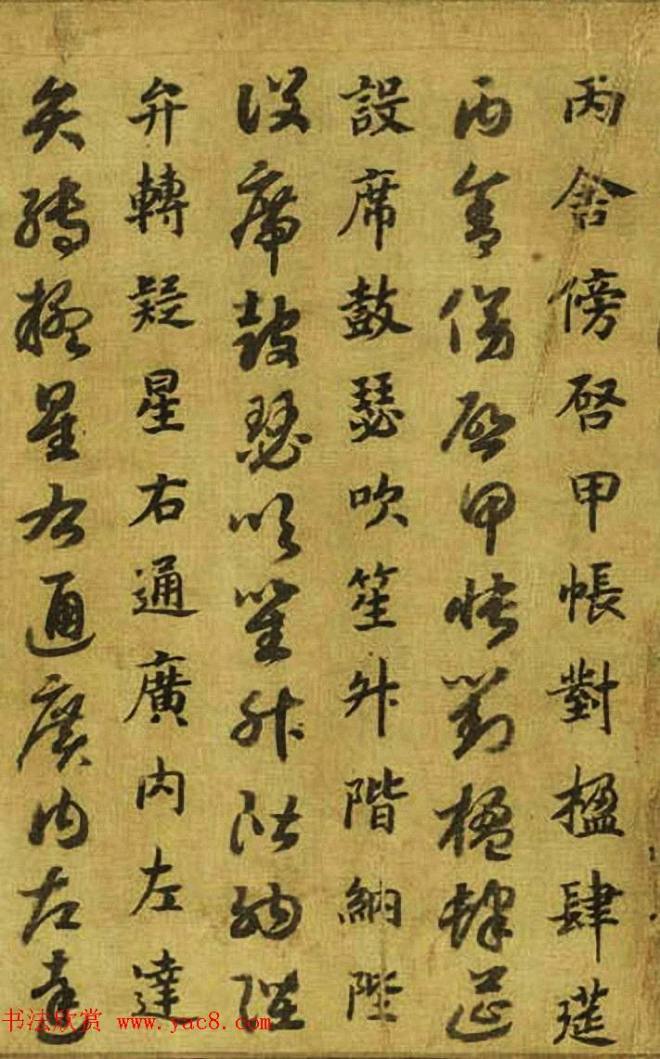 丙舍傍啓甲帳對楹肆筵
丙舍傍啓甲帳對楹肆筵
設席鼓瑟吹笙升階納陛
設席鼓瑟吹笙升階納陛
弁轉疑星右通廣内左達
弁轉疑星右通廣内左達
书法欣赏 www.yac8.com